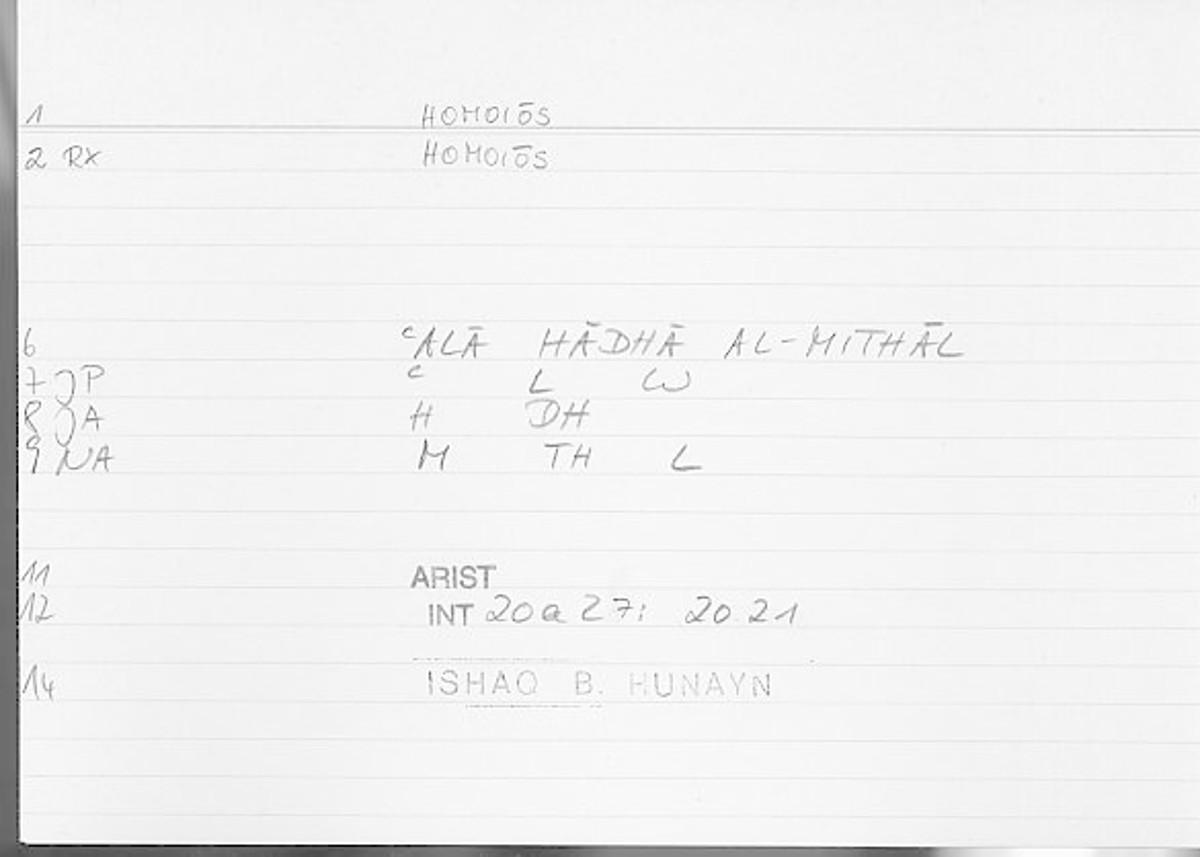 1 HOMOIŌS
2 RX HOMOIŌS
6 ᶜALĀ HĀDHĀ AL-MITHĀL
7 JP ᶜ L W
8 JA H DH
9 NA M TH L
11 ARIST
12 INT 20a27; 20.21
14 ISHAQ B. HUNAYN